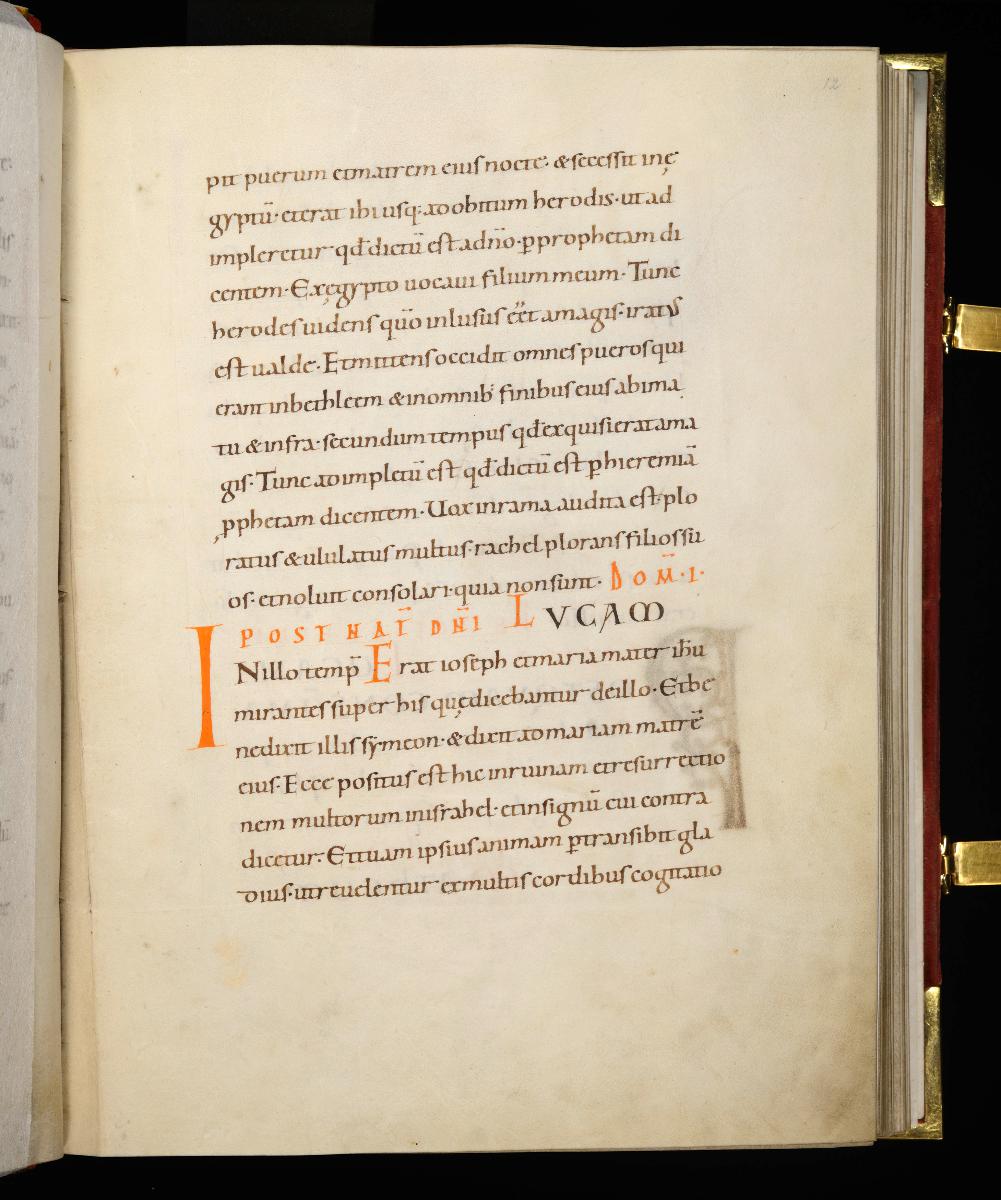 12
pit puerum etmatrem eius nocte· &secessit inę
gyptū· eterat ibi usq; adobitum herodis· ut ad
impleretur qđ dictū est adn̄o· ꝑprophetam di
centem· Exęgypto uocaui filium meum· Tunc
herodes uidens qūo inlusus eēt amagis· iratus
est ualde· Etmittens occidit omnes pueros qui
erant inbethleem &inomnib; finibus eius abima
tu &infra· secundum tempus qđ exquisierat ama
gis· Tunc adimpletū est qđ dictū est ꝑhieremiā
ꝓphetam dicentem· Uox inrama audita est· plo
ratus &ululatus multus· rachel plorans filios su
os· etnoluit consolari· quia non sunt· DOM̄·I·
POST NAT̄ DN̄I LUCAM
INillo temp̄ Erat ioseph etmaria mater ihu
mirantes super his quę dicebantur deillo· Etbe
nedixit illis symeon· &dixit admariam matrē
eius· Ecce positus est hic inruinam etresurrectio
nem multorum inisrahel· etinsignū cui contra
dicetur· Ettuam ipsius animam ꝑtransibit gla
dius· utreuelentur exmultis cordibus cogitatio